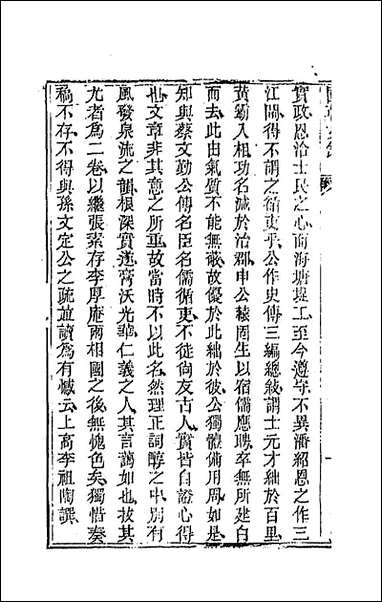 實政恩洽士民之心而海塘堤工至今遵守不異潘紹恩之作三
江閘得不謂之循吏乎公作史傳三編總敘謂士元才絀於百里
黃霸入相功名減於治郡申公轅固生以宿儒應聘卒無所建白
而去此由氣質不能無蔽故優於此絀於彼公獨體備用周如是
知與蔡文勤公傳名臣名儒循吏不徒尚友古人實皆自證心得
也文章非其意之所重故當時不以此名然理正詞醇之中別有
風發泉流之韻根深實遂膏沃光華仁義之人其言藹如也拔其
尤者為二卷以繼張素存李厚庵兩相國之後無愧色矣獨惜奏
稿不存不得與孫文定公之疏並讀為有憾云上高李祖陶譔